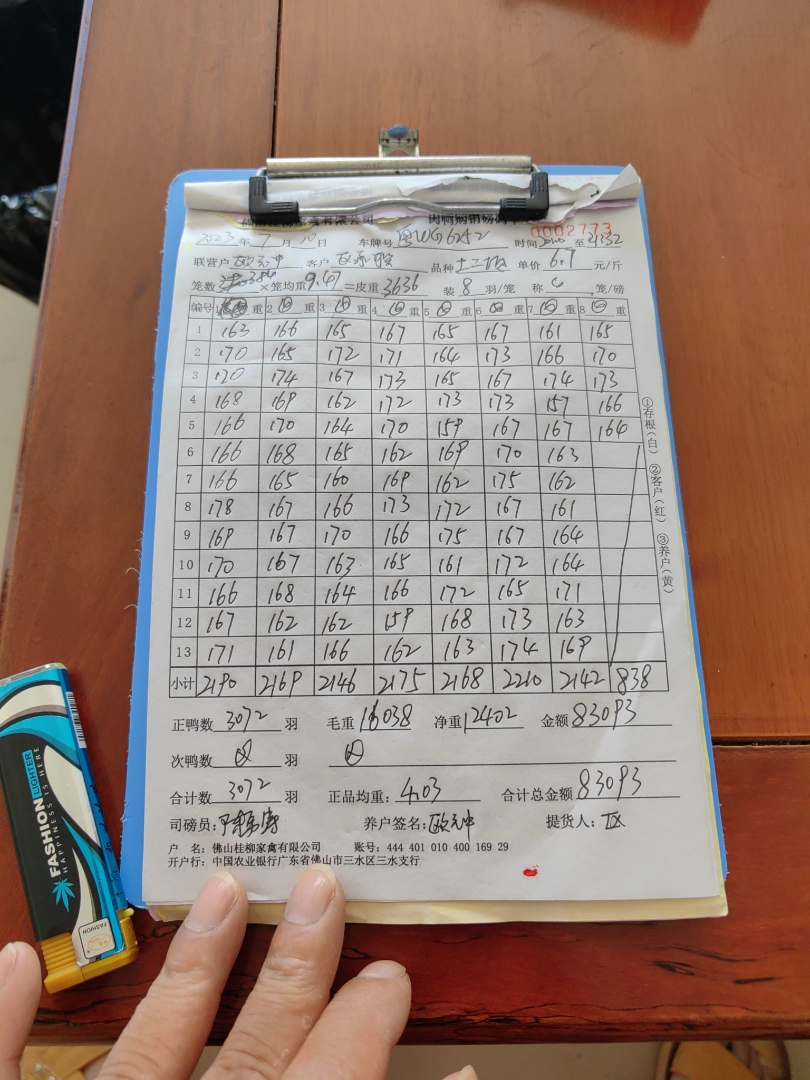 佛山桂柳家禽有限公司 肉鸭购销磅码单
0002773
2023 年 7 月 10 日 车牌号 粤WG6252 时间 至 21:32
联营户 欧元冲 客户 品种 单价 6.7 元/斤
笼数 384 ×笼均重 9.47 =皮重 3636 装 8 羽/笼 称 笼/磅
编号 1 重 2 重 3 重 4 重 5 重 6 重 7 重 8 重
1 163 166 165 167 165 167 161 165
2 170 165 172 171 164 173 166 170
3 170 174 167 173 165 167 174 173
4 168 169 162 172 173 173 157 166
5 166 170 164 170 159 167 167 164
6 166 168 165 162 169 170 163
7 166 165 160 169 162 175 162
8 178 167 166 173 172 167 161
9 169 167 170 166 175 167 164
10 170 167 163 165 161 172 164
11 166 168 164 166 172 165 171
12 167 162 162 159 168 173 163
13 171 161 166 162 163 174 169
小计 2190 2169 2146 2175 2168 2210 2142 838
正鸭数 3072 羽 毛重 16038 净重 12402 金额 83093
次鸭数 羽
合计数 3072 羽 正品均重: 4.03 合计总金额 83093
司磅员: 养户签名: 欧元冲 提货人:
户 名: 佛山桂柳家禽有限公司 账号: 444 401 010 400 169 29
开户行: 中国农业银行广东省佛山市三水区三水支行
①存根(白) ②客户(红) ③养户(黄)
FASHION LIGHTER
HAPPINESS IS HERE
FASHION